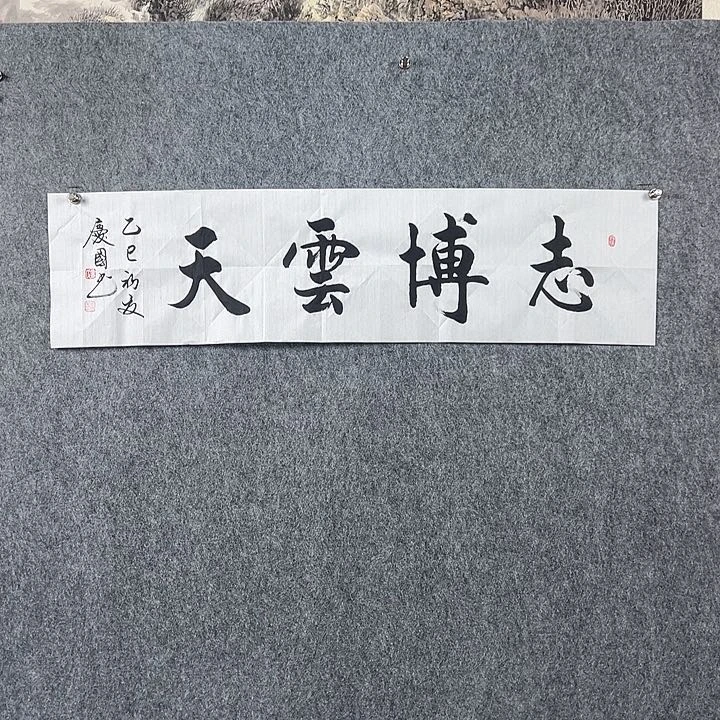 志博雲天
乙巳初夏
慶國书